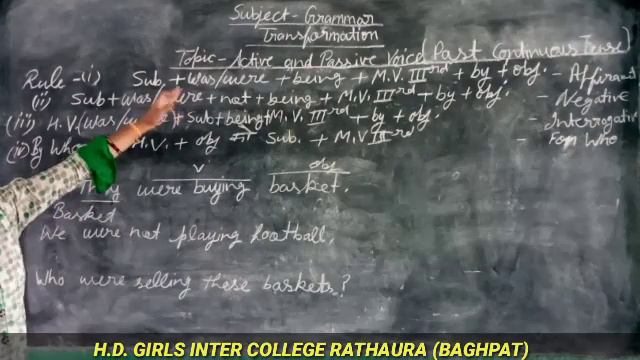 Subject - Grammar
Transformation
Topic - Active and Passive Voice Past Continuous Tense)
Rule - (i) Sub. + was/were + being + M.V. IIIrd + by + obj. - Affirmat
(ii) Sub + was/were + not + being + M.V. IIIrd + by + obj. - Negative
(iii) H.V. (was/ + Sub + being + M.V. IIIrd + by + obj. - Interrogativ
(iv) By Who H.V. + obj का Sub. + M.V IIIrd - For Who
v obj
They were buying basket.
Basket
We were not playing football.
Who were selling these baskets?
H.D. GIRLS INTER COLLEGE RATHAURA (BAGHPAT)